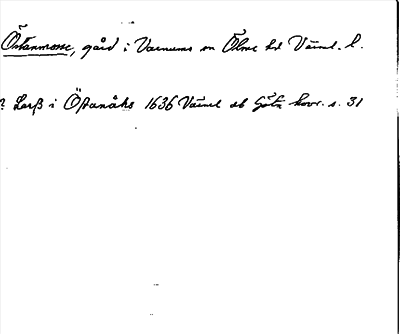 Östanmosse, gård i Varnums sn Ölme hd Värml. l.
? Larß i Östanåhs 1636 Värml ab Götr hovr. s. 31